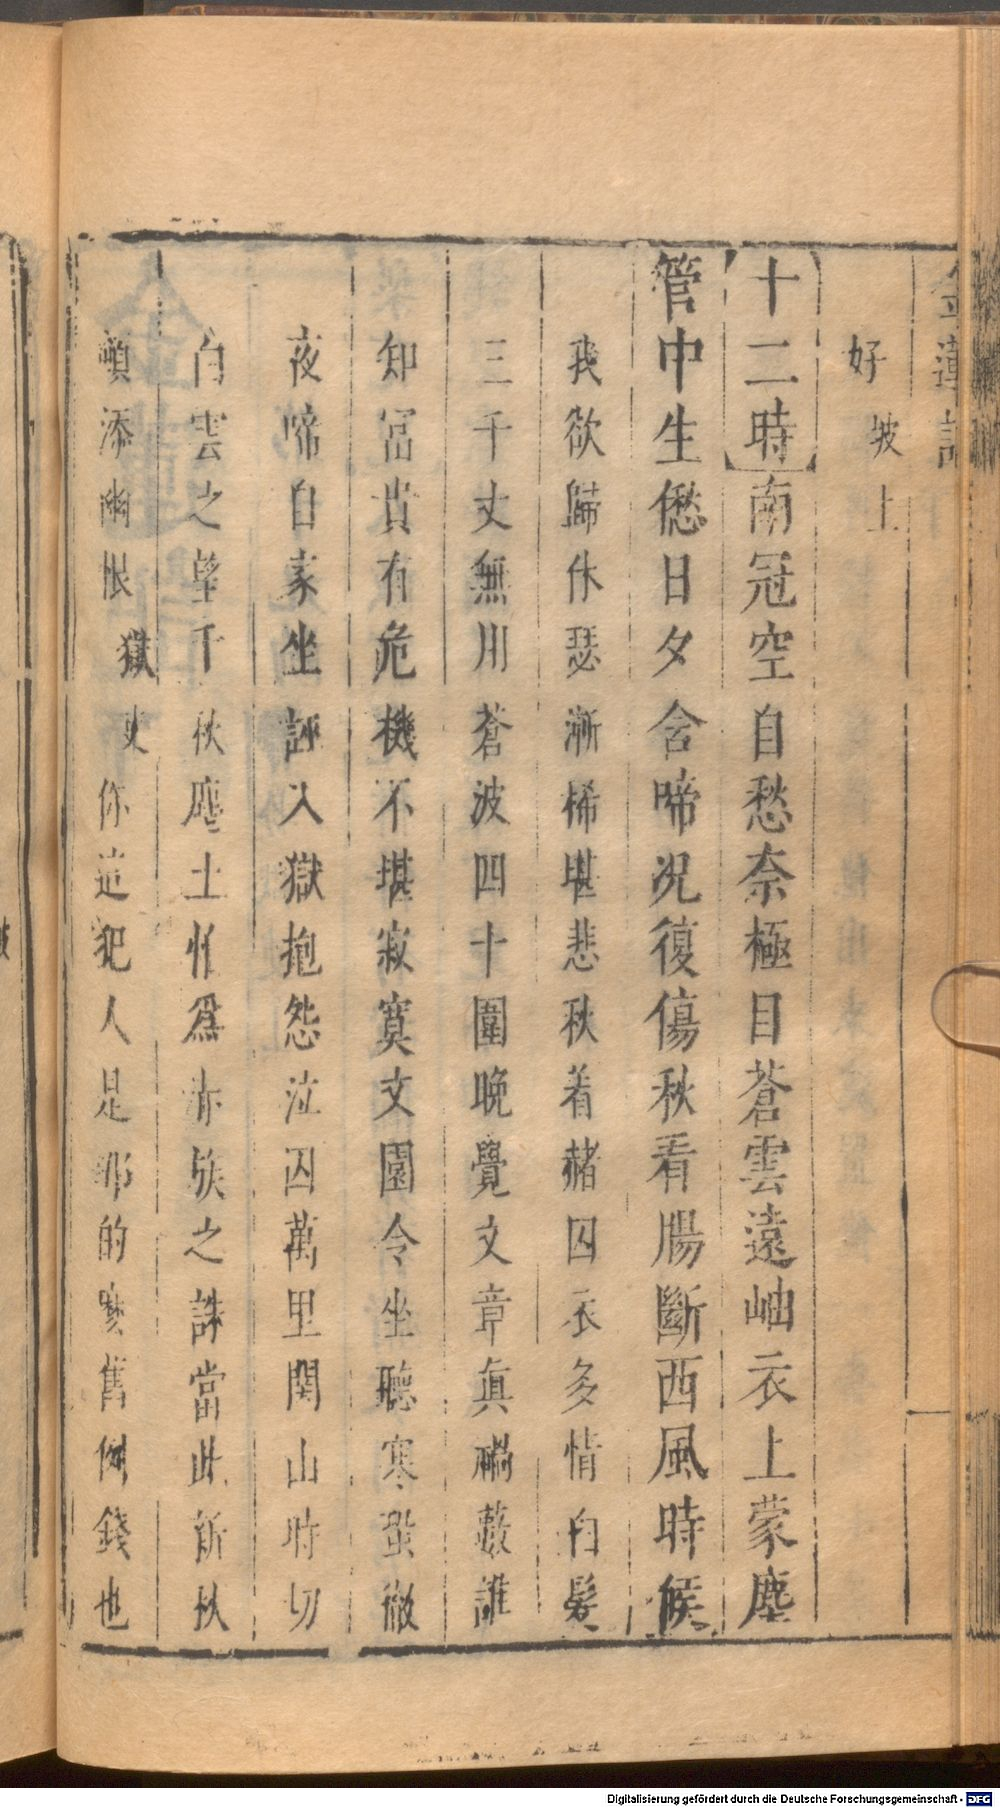 金蓮記
好坡上
【十二時】南冠空自愁奈極目蒼雲遠岫衣上蒙塵
管中生僽日夕含啼况復傷秋看腸斷西風時候
我欲歸休瑟漸稀堪悲秋着赭囚衣多情白髮
三千丈無用蒼波四十圍晚覺文章真禍藪誰
知冨貴有危機不堪寂寞文園令坐聽寒蛩徹
夜啼自家坐誣入獄抱怨泣囚萬里関山時切
白雲之望千秋塵土惟為赤族之誅當此新秋
頓添幽恨獄吏你這犯人是那的要舊例錢也
Digitalisierung gefördert durch die Deutsche Forschungsgemeinschaft - DFG